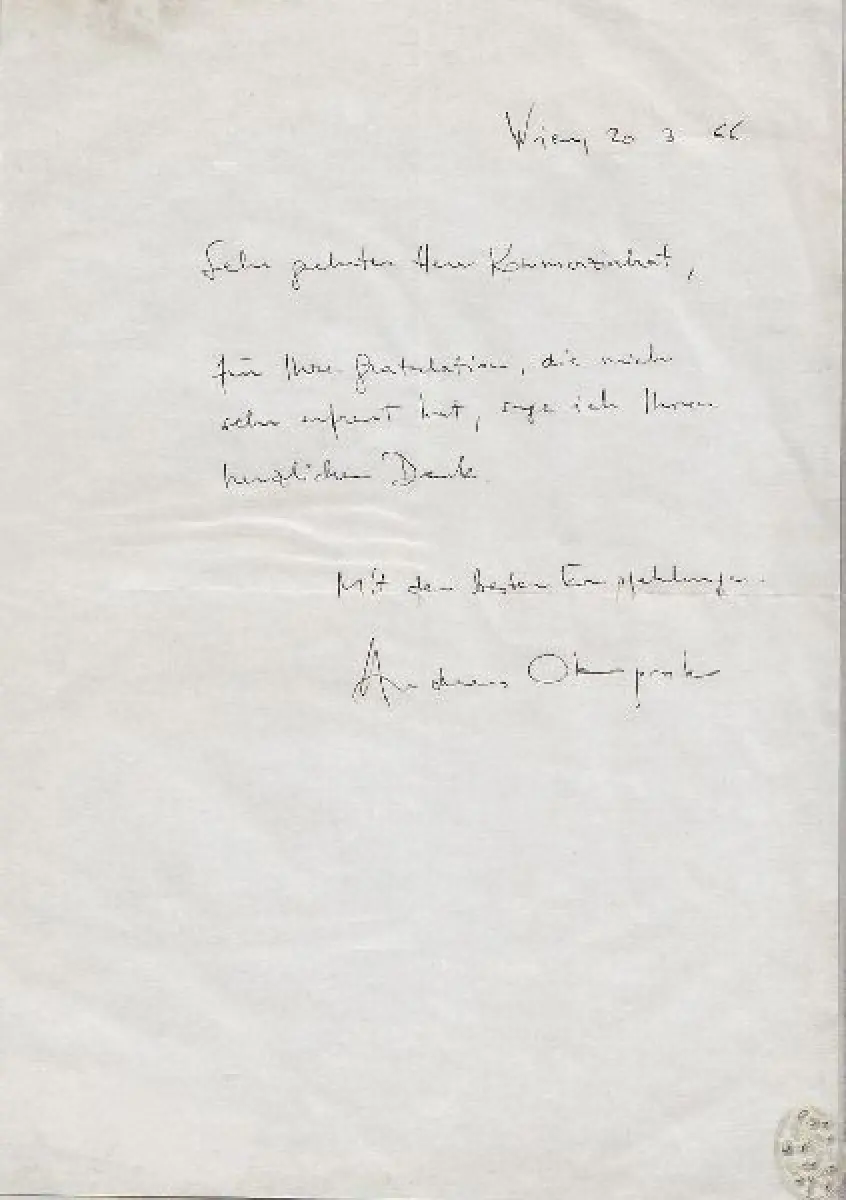 Wien, 20 3 66
Sehr geehrter Herr Kommerzialrat,
für Ihre Gratulation, die mich
sehr erfreut hat, sage ich Ihnen
herzlichen Dank.
Mit den besten Empfehlungen
Andreas Okopenko